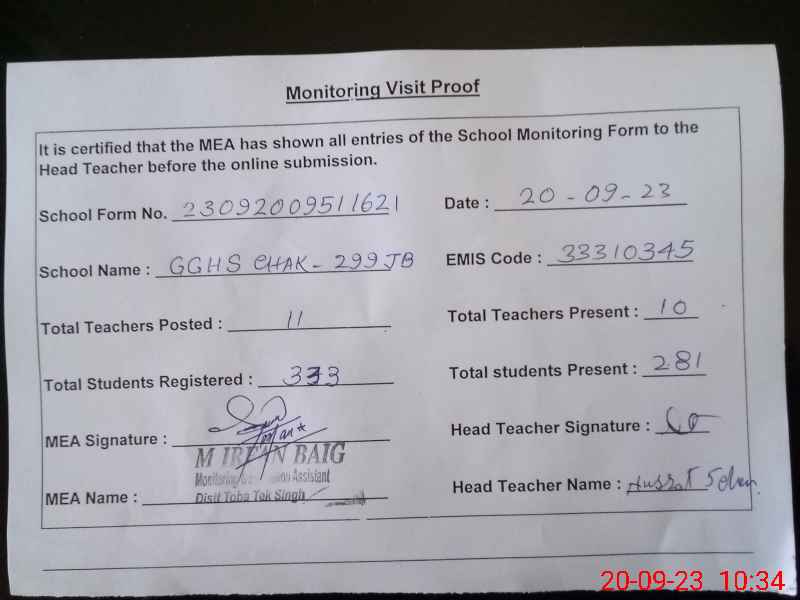 Monitoring Visit Proof
It is certified that the MEA has shown all entries of the School Monitoring Form to the
Head Teacher before the online submission.
School Form No. 23092009511621 Date : 20-09-23
School Name : GGHS CHAK-299JB EMIS Code : 33310345
Total Teachers Posted : 11 Total Teachers Present : 10
Total Students Registered : 333 Total students Present : 281
MEA Signature : Head Teacher Signature :
M IRFAN BAIG
Monitoring Assistant
MEA Name : Distt Toba Tek Singh Head Teacher Name : Nusrat
20-09-23 10:34